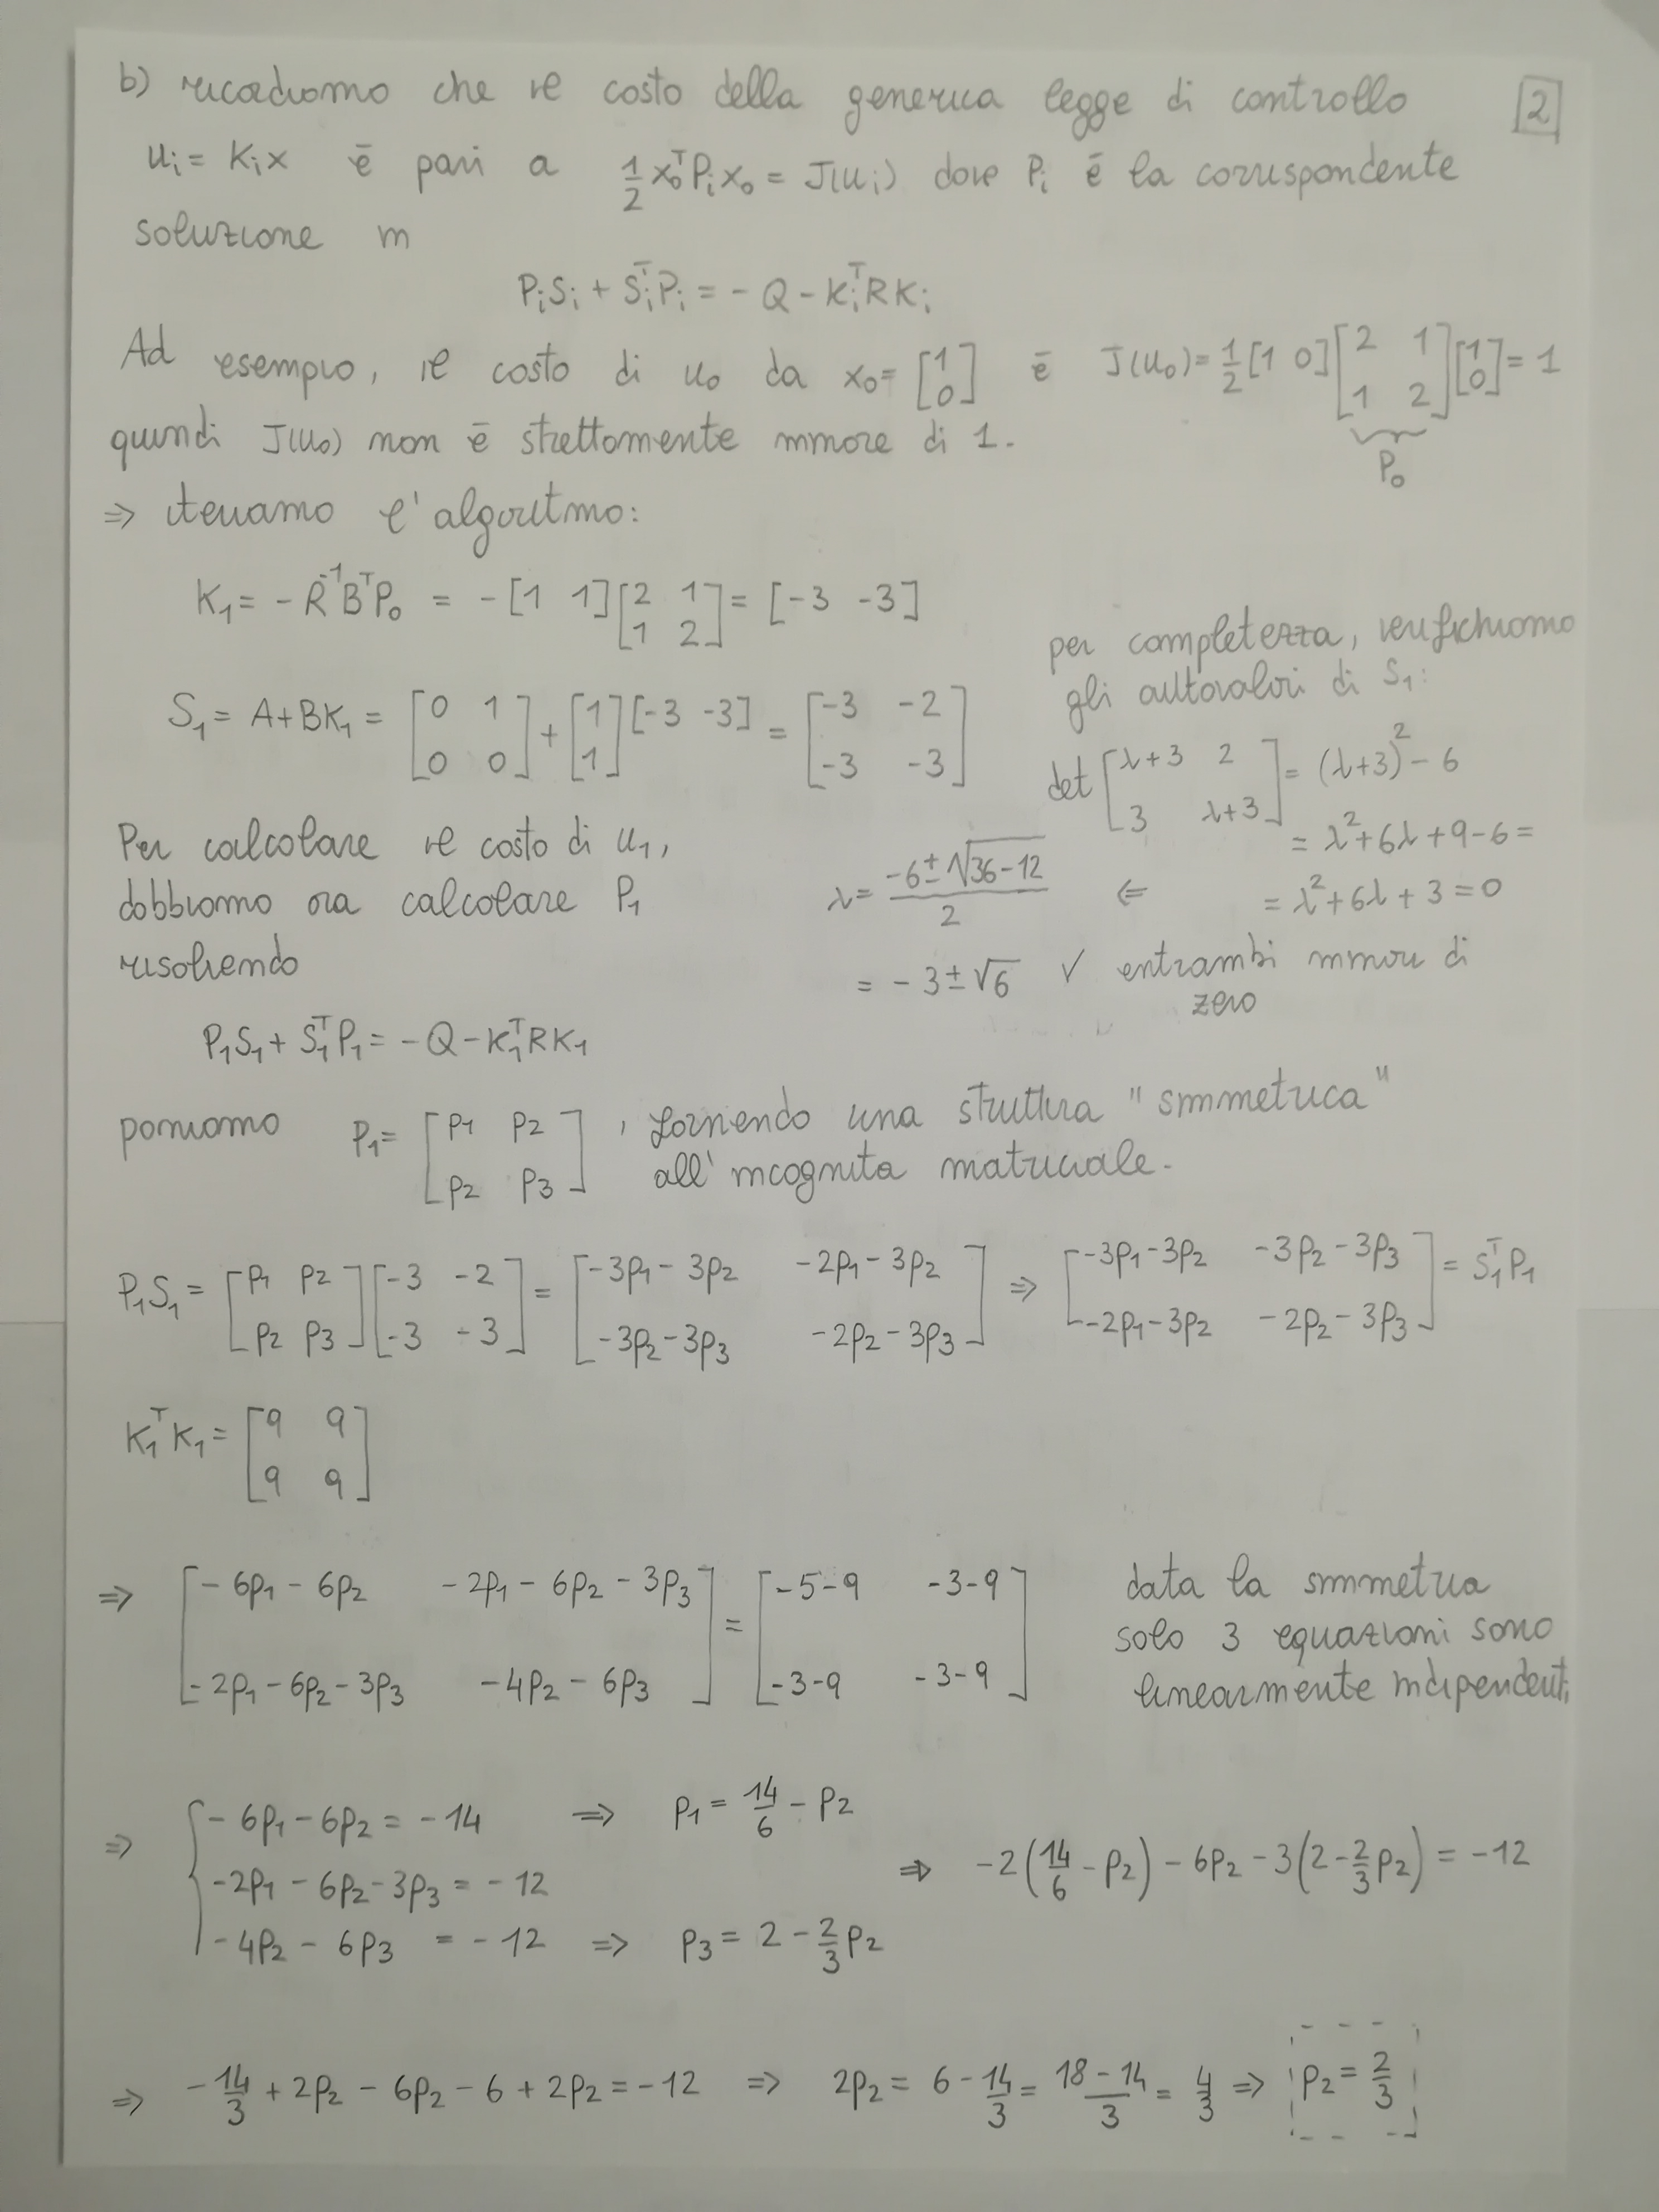 b) ricordiamo che il costo della generica legge di controllo [2]
u_i = K_i x è pari a 1/2 x_0^T P_i x_0 = J(u_i) dove P_i è la corrispondente
soluzione in
P_i S_i + S_i^T P_i = - Q - K_i^T R K_i
Ad esempio, il costo di u_0 da x_0 = [1; 0] è J(u_0) = 1/2 [1 0] [2 1; 1 2] [1; 0] = 1
P_0
quindi J(u_0) non è strettamente minore di 1.
⇒ iteriamo l'algoritmo:
K_1 = - R^-1 B^T P_0 = - [1 1] [2 1; 1 2] = [-3 -3]
per completezza, verifichiamo
gli autovalori di S_1:
S_1 = A + BK_1 = [0 1; 0 0] + [1; 1] [-3 -3] = [-3 -2; -3 -3]
det [λ+3 2; 3 λ+3] = (λ+3)^2 - 6
= λ^2 + 6λ + 9 - 6 =
= λ^2 + 6λ + 3 = 0
⇐ λ = (-6 ± √(36-12)) / 2
= -3 ± √6 ✓ entrambi minori di
zero
Per calcolare il costo di u_1,
dobbiamo ora calcolare P_1
risolvendo
P_1 S_1 + S_1^T P_1 = - Q - K_1^T R K_1
poniamo P_1 = [p_1 p_2; p_2 p_3] , fornendo una struttura "simmetrica"
all'incognita matriciale.
P_1 S_1 = [p_1 p_2; p_2 p_3] [-3 -2; -3 -3] = [-3p_1-3p_2 -2p_1-3p_2; -3p_2-3p_3 -2p_2-3p_3] ⇒ [-3p_1-3p_2 -3p_2-3p_3; -2p_1-3p_2 -2p_2-3p_3] = S_1^T P_1
K_1^T K_1 = [9 9; 9 9]
⇒ [-6p_1-6p_2 -2p_1-6p_2-3p_3; -2p_1-6p_2-3p_3 -4p_2-6p_3] = [-5-9 -3-9; -3-9 -3-9]
data la simmetria
solo 3 equazioni sono
linearmente indipendenti
⇒ { -6p_1 - 6p_2 = -14 ⇒ p_1 = 14/6 - p_2
-2p_1 - 6p_2 - 3p_3 = -12
-4p_2 - 6p_3 = -12 ⇒ p_3 = 2 - 2/3 p_2
⇒ -2(14/6 - p_2) - 6p_2 - 3(2 - 2/3 p_2) = -12
⇒ -14/3 + 2p_2 - 6p_2 - 6 + 2p_2 = -12 ⇒ 2p_2 = 6 - 14/3 = (18-14)/3 = 4/3 ⇒ p_2 = 2/3